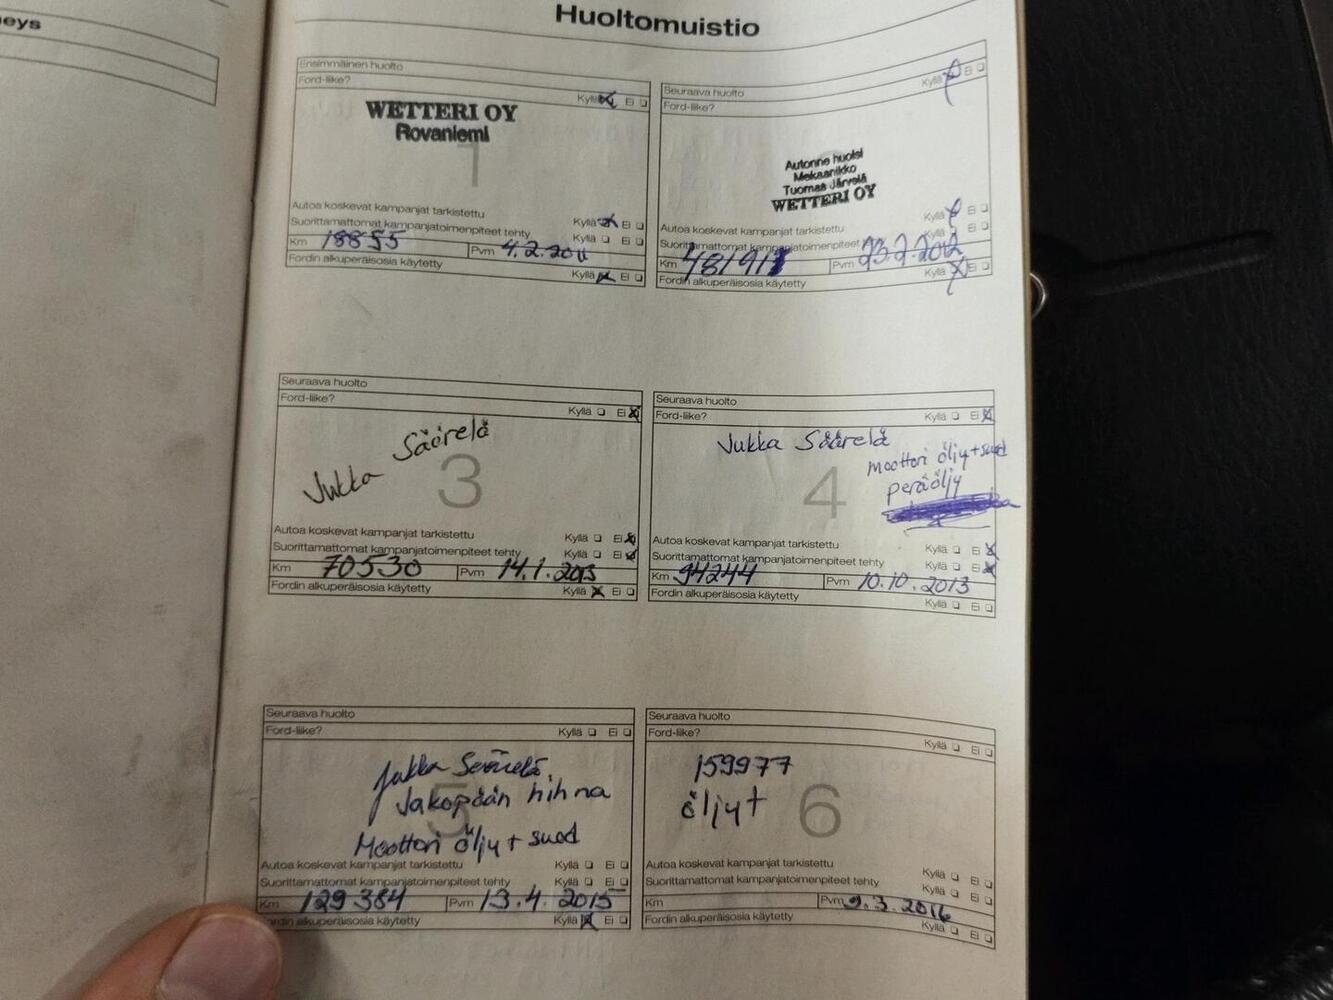 eys
Huoltomuistio
Ensimmäinen huolto
Ford-liike?
Kyllä Ei
WETTERI OY
Rovaniemi
1
Autoa koskevat kampanjat tarkistettu
Kyllä Ei
Suorittamattomat kampanjatoimenpiteet tehty
Kyllä Ei
Km 18855 Pvm 4.2.2011
Fordin alkuperäisosia käytetty
Kyllä Ei
Seuraava huolto
Kyllä Ei
Ford-liike?
Autonne huolsi
Mekaanikko
Tuomas Järvelä
WETTERI OY
Autoa koskevat kampanjat tarkistettu
Kyllä Ei
Suorittamattomat kampanjatoimenpiteet
Kyllä Ei
Km Pvm
Fordin alkuperäisosia käytetty
Kyllä Ei
Seuraava huolto
Ford-liike?
Kyllä Ei
Jukka Säärelä
3
Autoa koskevat kampanjat tarkistettu
Kyllä Ei
Suorittamattomat kampanjatoimenpiteet tehty
Kyllä Ei
Km 70530 Pvm 14.1.2013
Fordin alkuperäisosia käytetty
Kyllä Ei
Seuraava huolto
Ford-liike?
Kyllä Ei
Jukka Säärelä
Moottori öljy+suod
peräöljy
4
Autoa koskevat kampanjat tarkistettu
Kyllä Ei
Suorittamattomat kampanjatoimenpiteet tehty
Kyllä Ei
Km 94244 Pvm 10.10.2013
Fordin alkuperäisosia käytetty
Kyllä Ei
Seuraava huolto
Ford-liike?
Kyllä Ei
Jukka Säärelä
Jakopään hihna
5
Moottori öljy + suod
Autoa koskevat kampanjat tarkistettu
Kyllä Ei
Suorittamattomat kampanjatoimenpiteet tehty
Kyllä Ei
Km 129384 Pvm 13.4.2015
Fordin alkuperäisosia käytetty
Kyllä Ei
Seuraava huolto
Ford-liike?
Kyllä Ei
159977
öljyt
6
Autoa koskevat kampanjat tarkistettu
Kyllä Ei
Suorittamattomat kampanjatoimenpiteet tehty
Kyllä Ei
Km Pvm 9.3.2016
Fordin alkuperäisosia käytetty
Kyllä Ei